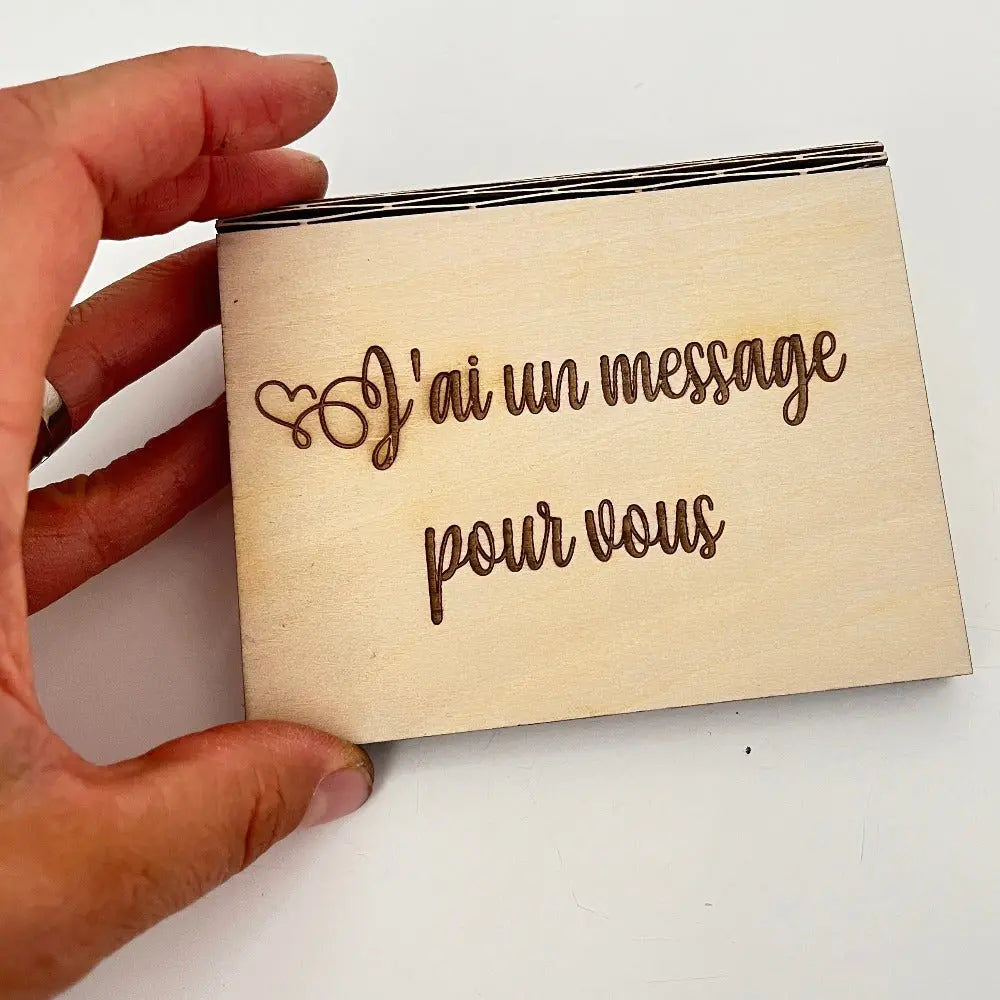 J'ai un message
pour vous